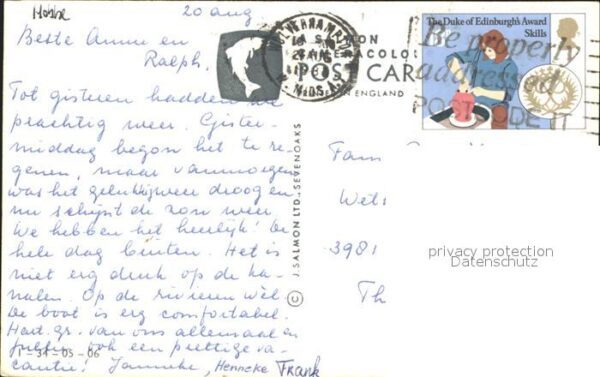 20 aug
Beste Annie en
Ralph,
Tot gisteren hadden we
prachtig weer. Gister-
middag begon het te re-
genen, maar vanmorgen
was het gelukkig weer droog en
nu schijnt de zon weer.
We hebben het heerlijk! De
hele dag buiten. Het is
niet erg druk op de ka-
nalen. Op de rivieren wèl
De boot is erg comfortabel.
Hart. gr. van ons allemaal en
ook een prettige va-
cantie! Janneke, Henneke Frank
1-31-05-06
J. SALMON LTD., SEVENOAKS
©
SALMON
CAMERACOLOUR
POST CARD
ENGLAND
INVERNESS
The Duke of Edinburgh's Award
Skills
Be properly
addressed
POSTCODE IT
Fam
3981
Th
privacy protection
Datenschutz